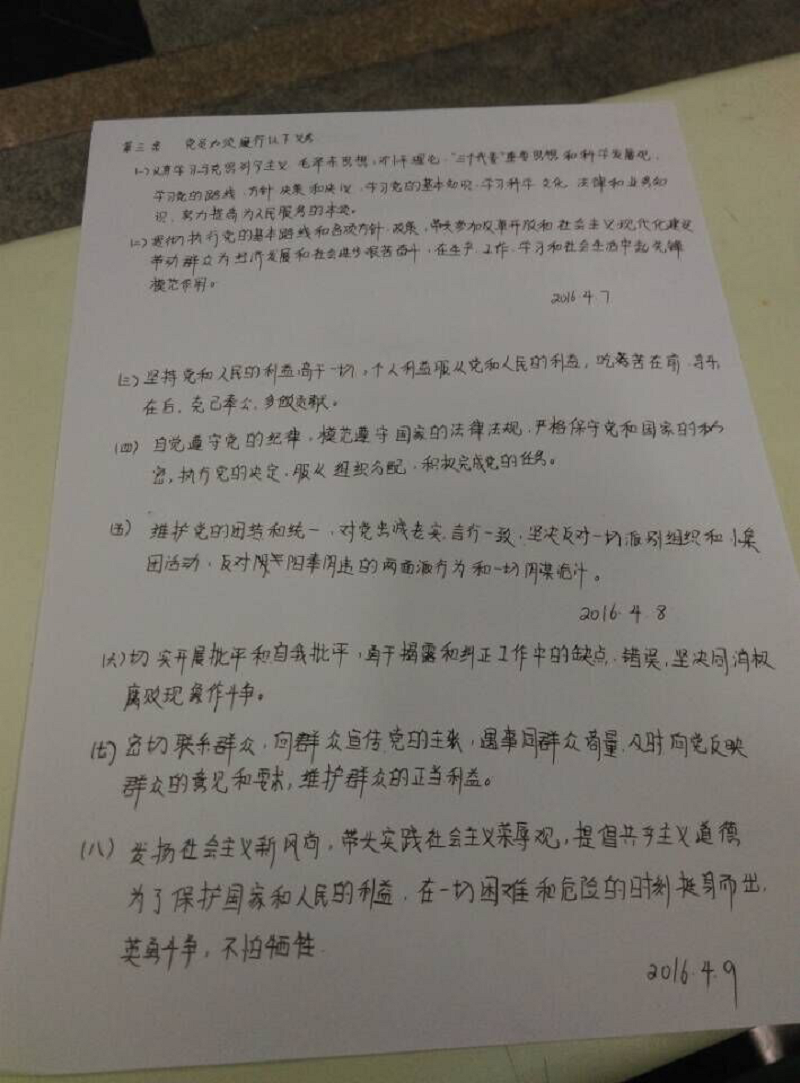 第三条 党员必须履行以下义务
(一)认真学习马克思列宁主义、毛泽东思想、邓小平理论、“三个代表”重要思想和科学发展观,
学习党的路线、方针、政策和决议,学习党的基本知识,学习科学、文化、法律和业务知
识,努力提高为人民服务的本领。
(二)贯彻执行党的基本路线和各项方针、政策,带头参加改革开放和社会主义现代化建设
带动群众为经济发展和社会进步艰苦奋斗,在生产、工作、学习和社会生活中起先锋
模范作用。
2016.4.7
(三)坚持党和人民的利益高于一切,个人利益服从党和人民的利益,吃苦在前,享乐
在后,克己奉公,多做贡献。
(四)自觉遵守党的纪律,模范遵守国家的法律法规,严格保守党和国家的秘
密,执行党的决定,服从组织分配,积极完成党的任务。
(五)维护党的团结和统一,对党忠诚老实,言行一致,坚决反对一切派别组织和小集
团活动,反对阳奉阴违的两面派行为和一切阴谋诡计。
2016.4.8
(六)切实开展批评和自我批评,勇于揭露和纠正工作中的缺点、错误,坚决同消极
腐败现象作斗争。
(七)密切联系群众,向群众宣传党的主张,遇事同群众商量,及时向党反映
群众的意见和要求,维护群众的正当利益。
(八)发扬社会主义新风尚,带头实践社会主义荣辱观,提倡共产主义道德
为了保护国家和人民的利益,在一切困难和危险的时刻挺身而出,
英勇斗争,不怕牺牲.
2016.4.9